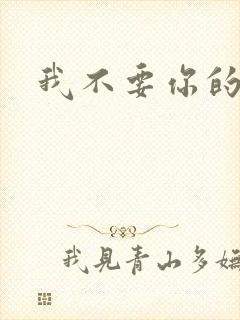 我不要你的
我見青山多嫵